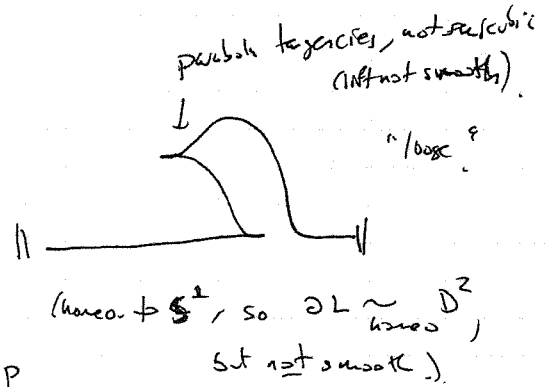 parabola tangencies, not semicubic
(Lift not smooth).
"loose"
(homeo. to S¹, so ∂L ~ homeo D²,
but not smooth).
P